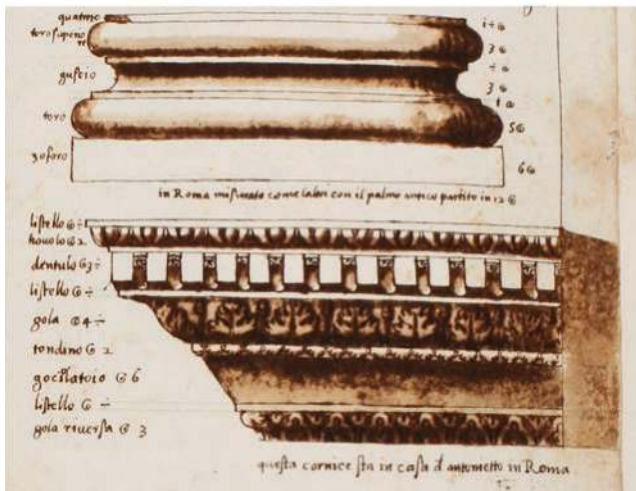 quatino
toro superio
re
guscio
toro
zoforo
3 ⊚
3 ⊚
5 ⊚
6 ⊚
in Roma misurato come laltri con il palmo antico partito in 12 ⊚
listello ⊚ ÷
hovolo ⊚ 2
dentulo ⊚ 3 ÷
listello ⊚ ÷
gola ⊚ 4 ÷
tondino ⊚ 2
gocilatoio ⊚ 6
listello ⊚ ÷
gola riversa ⊚ 3
questa cornice sta in casa d antonietto in Roma